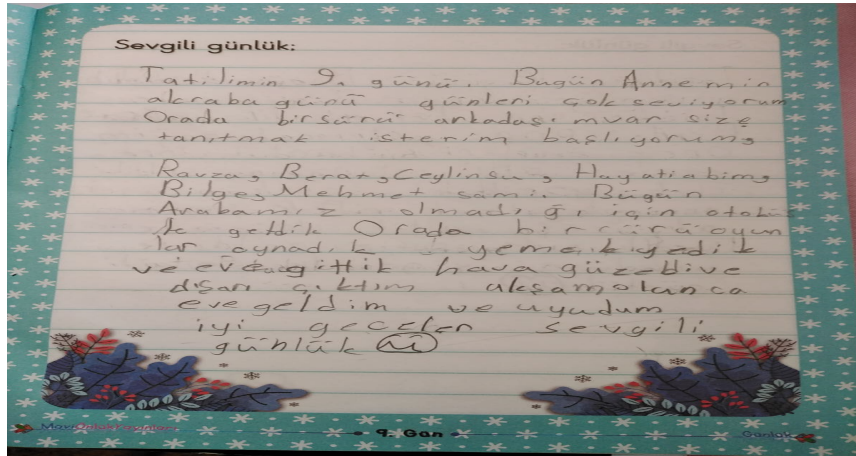 Sevgili günlük:
Tatilimin 9. günü. Bugün Annemin
akraba günü günleri çok seviyorum
Orada birsürü arkadaşımvar size
tanıtmak isterim başlıyorum,
Ravza, Berat, Ceylinsu, Hayatiabim,
Bilge, Mehmet sami. Bügün
Arabamız olmadığı için otobüs
le geldik Orada birsürüoyun
lar oynadık yemekyedik
ve eve gittik hava güzeldive
dışarı çıktım akşamolanca
eve geldim ve uyudum
iyi geceler sevgili
günlük
MaviÖnlükYayınları
9. Gün
Günlük